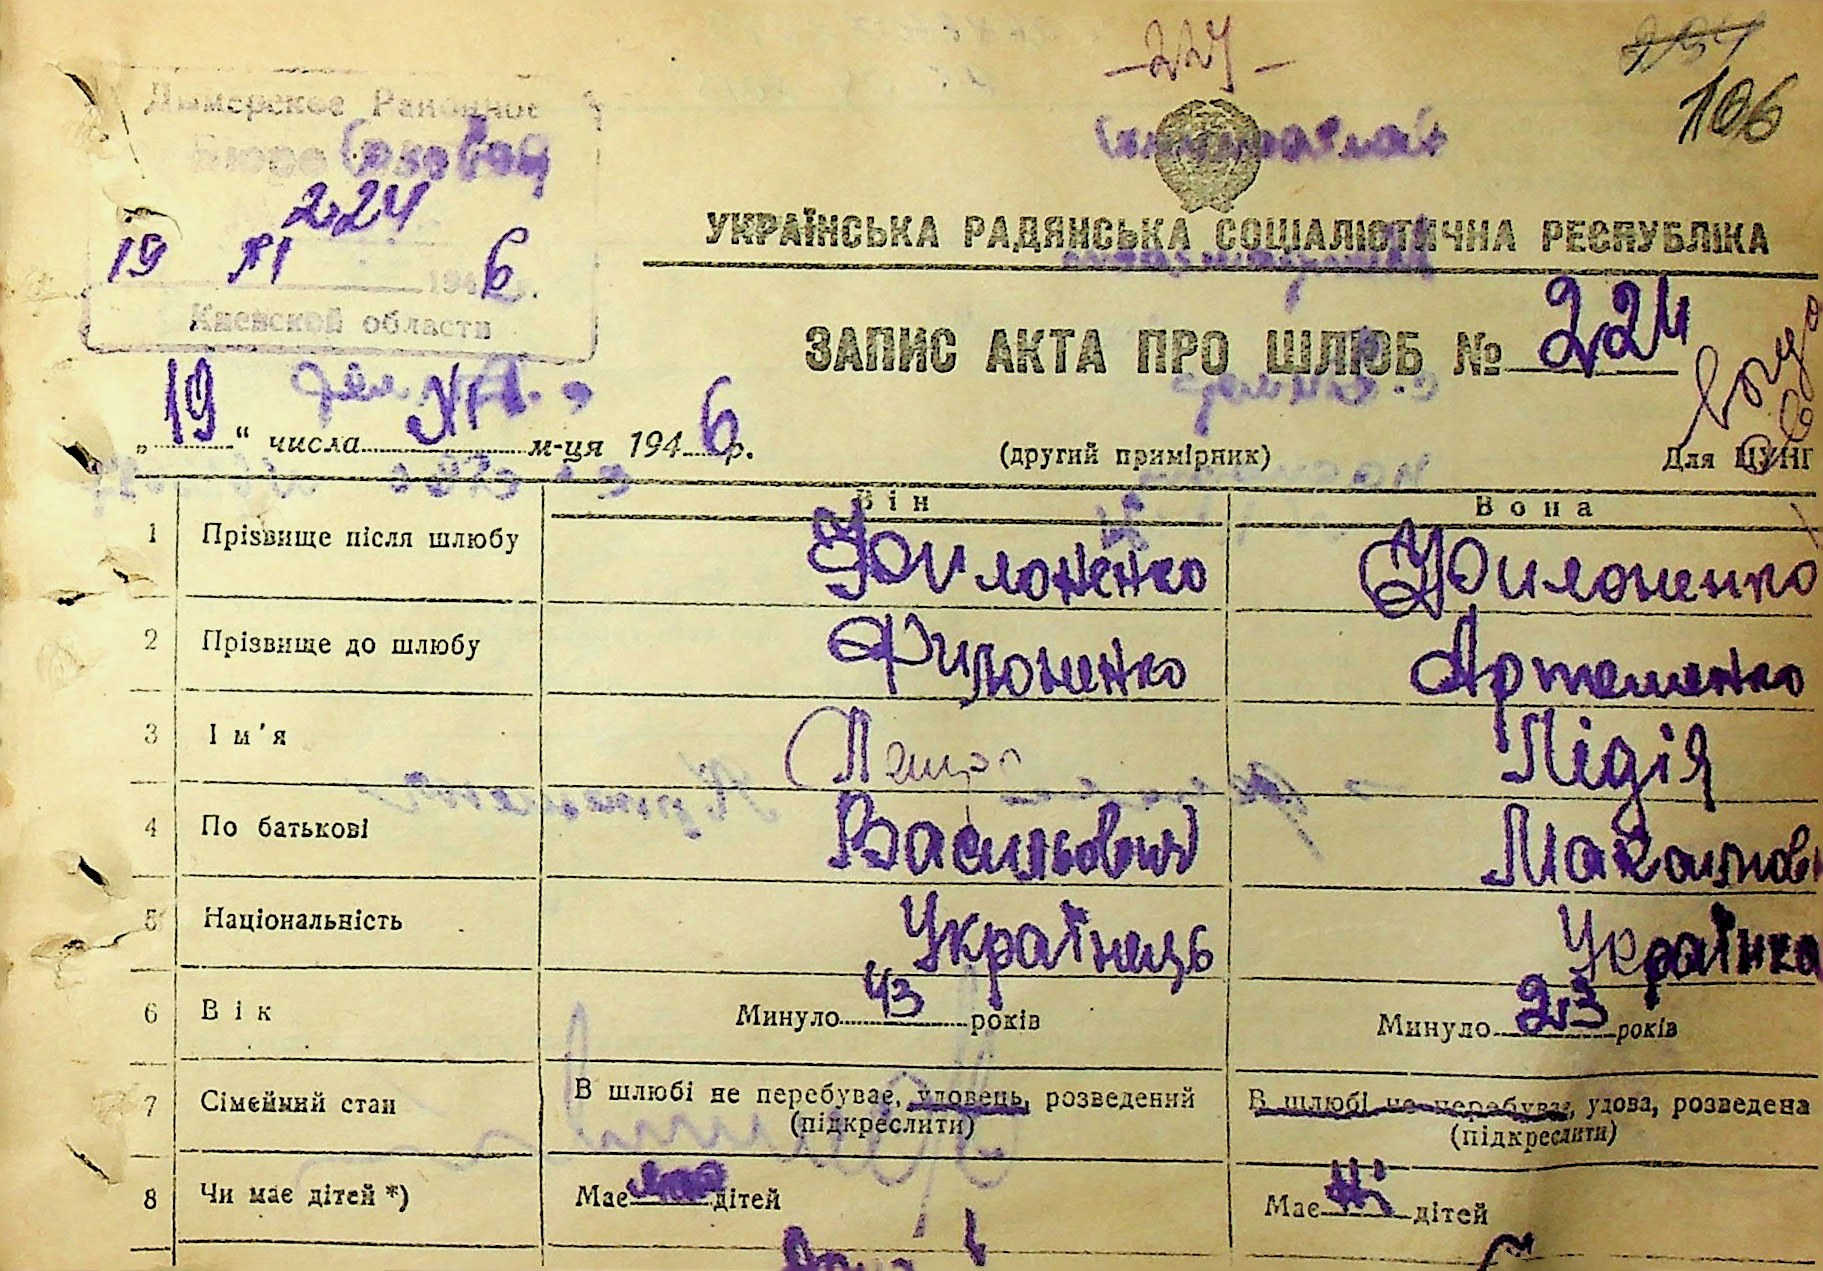 224
106
Дымерское Районное
Бюро
224
19 XI 1946 г.
Киевской области
УКРАЇНСЬКА РАДЯНСЬКА СОЦІАЛІСТИЧНА РЕСПУБЛІКА
ЗАПИС АКТА ПРО ШЛЮБ № 224
„19“ числа XI м-ця 1946 р.
(другий примірник)
Для ЦУНГ
Він Вона
1 Прізвище після шлюбу Филоненко Филоненко
2 Прізвище до шлюбу Филоненко Артеменко
3 Ім'я Лідія
4 По батькові Васильович
5 Національність Українець Українка
6 Вік Минуло 43 років Минуло 23 років
7 Сімейний стан В шлюбі не перебуває, удовець, розведений В шлюбі не перебуває, удова, розведена
(підкреслити) (підкреслити)
8 Чи має дітей *) Має дітей Має ні дітей